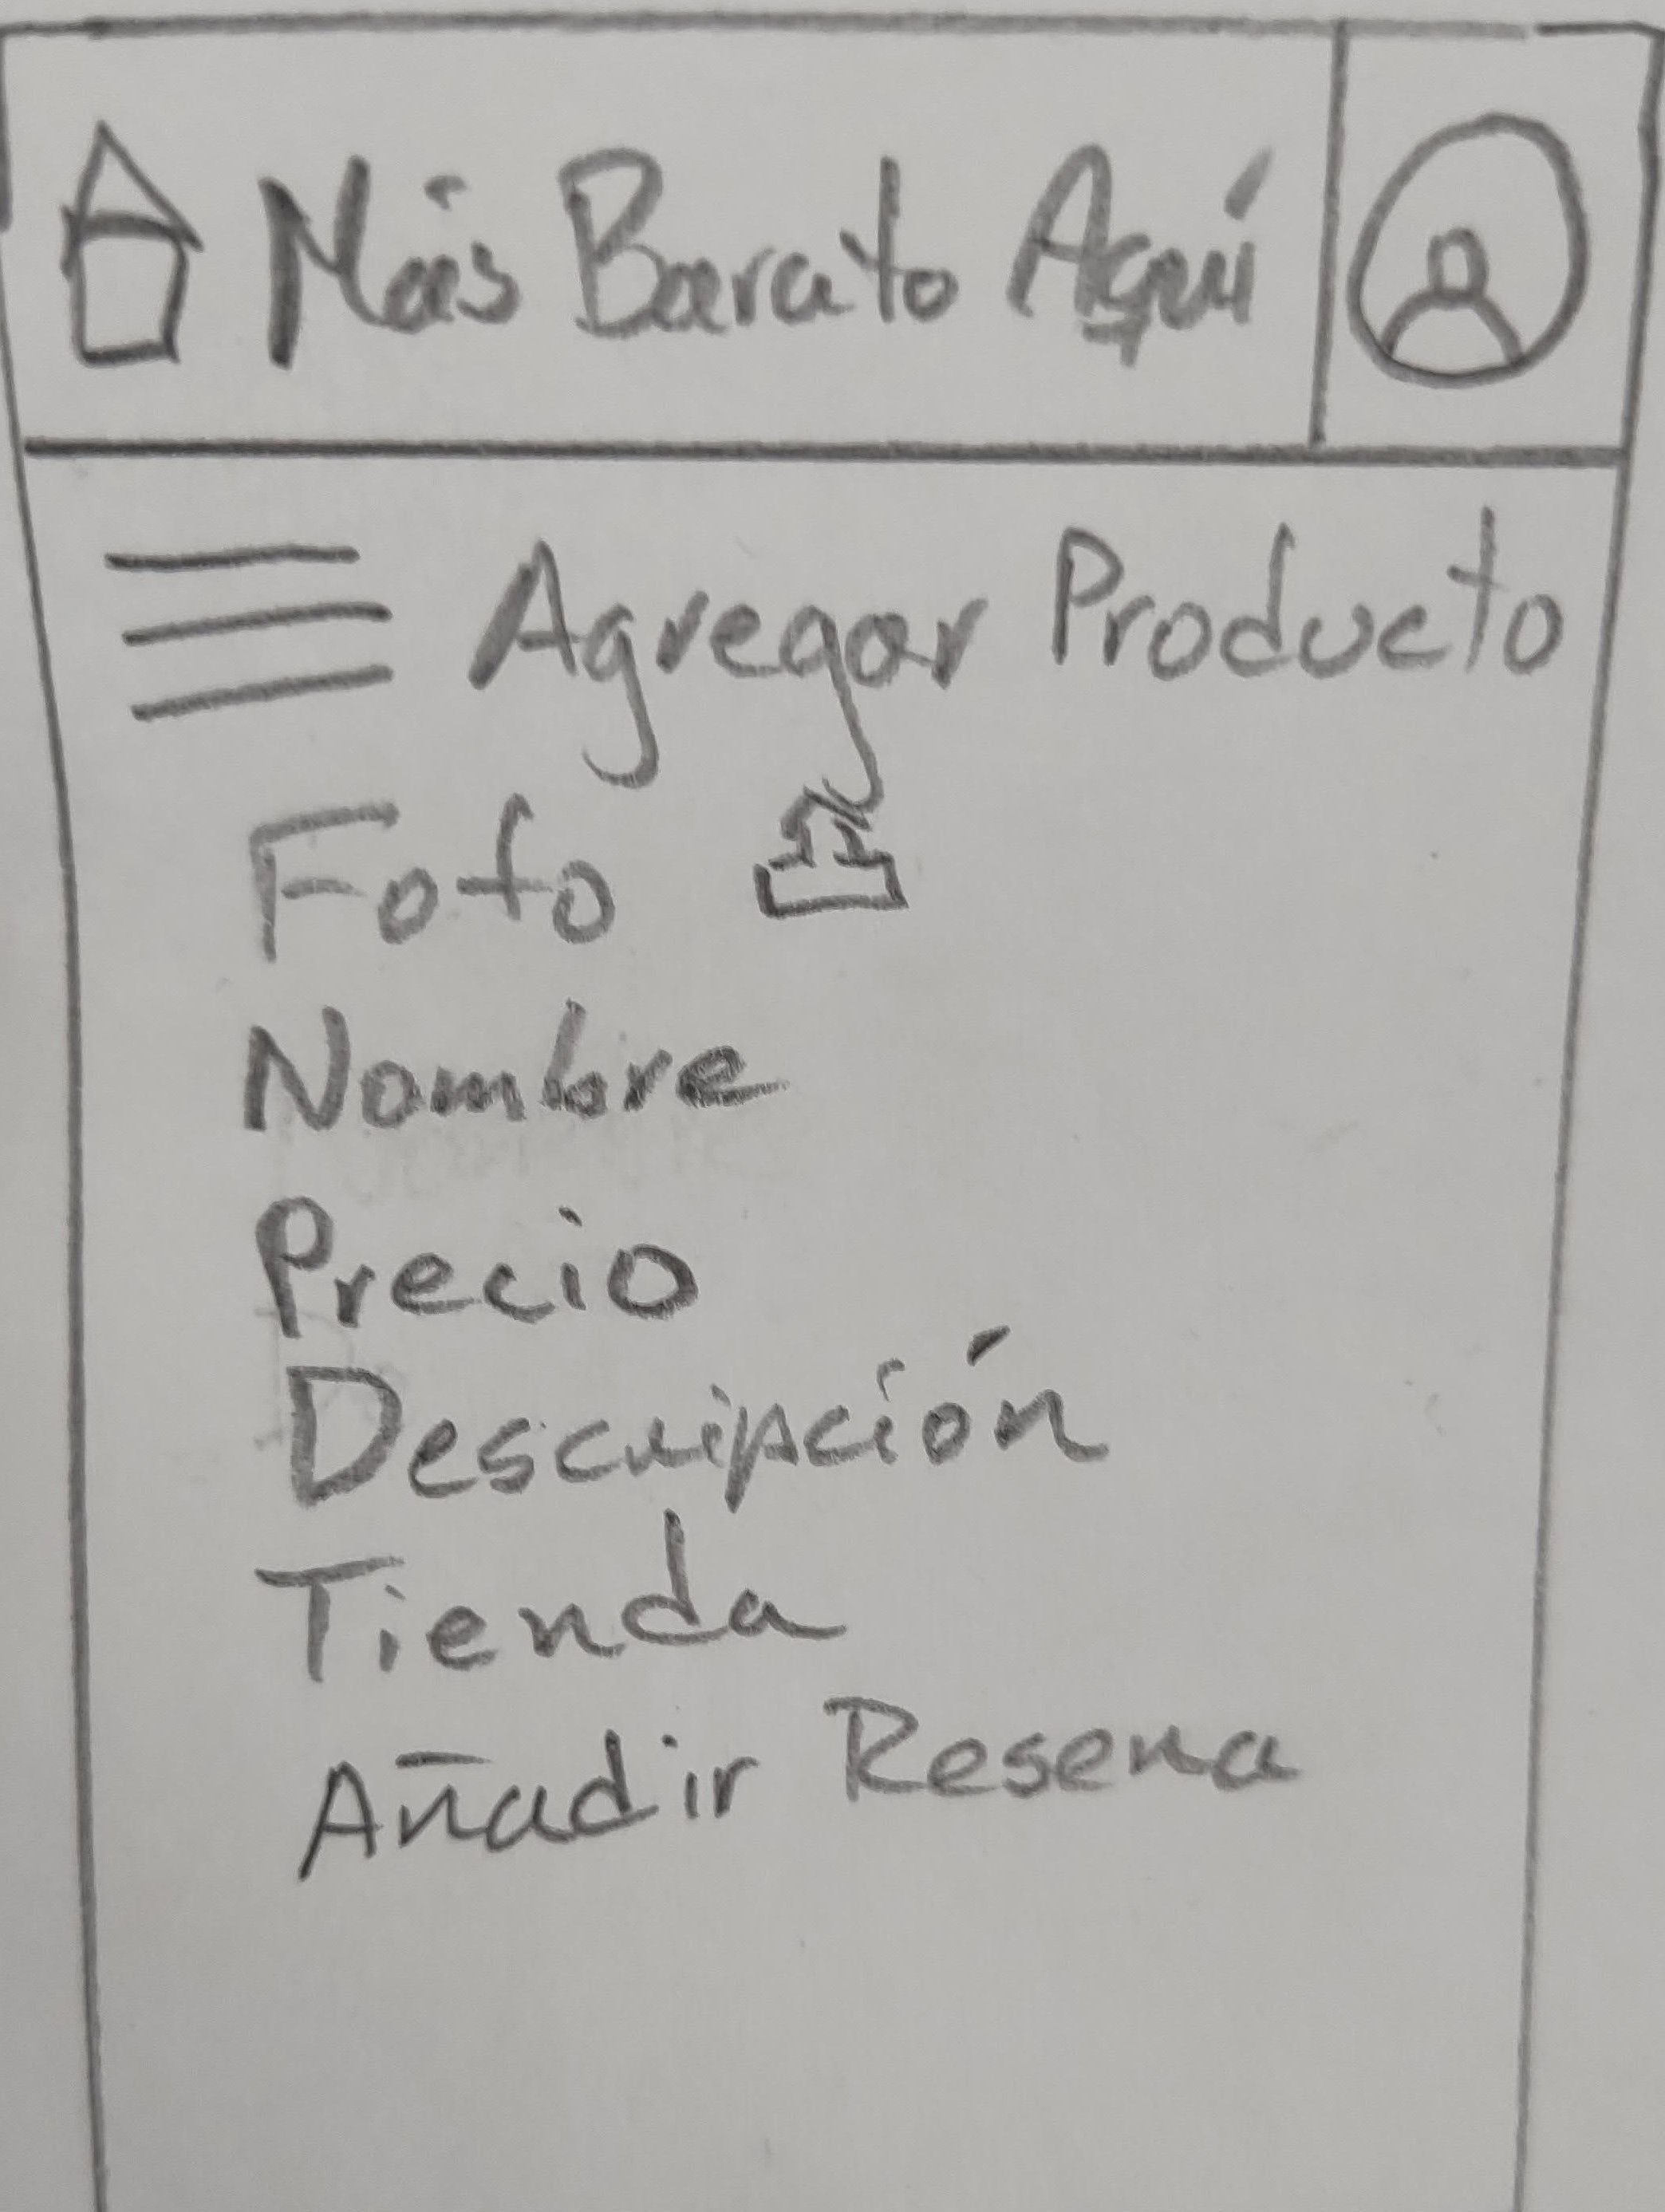 Más Barato Aquí
Agregar Producto
Foto
Nombre
Precio
Descripción
Tienda
Añadir Resena